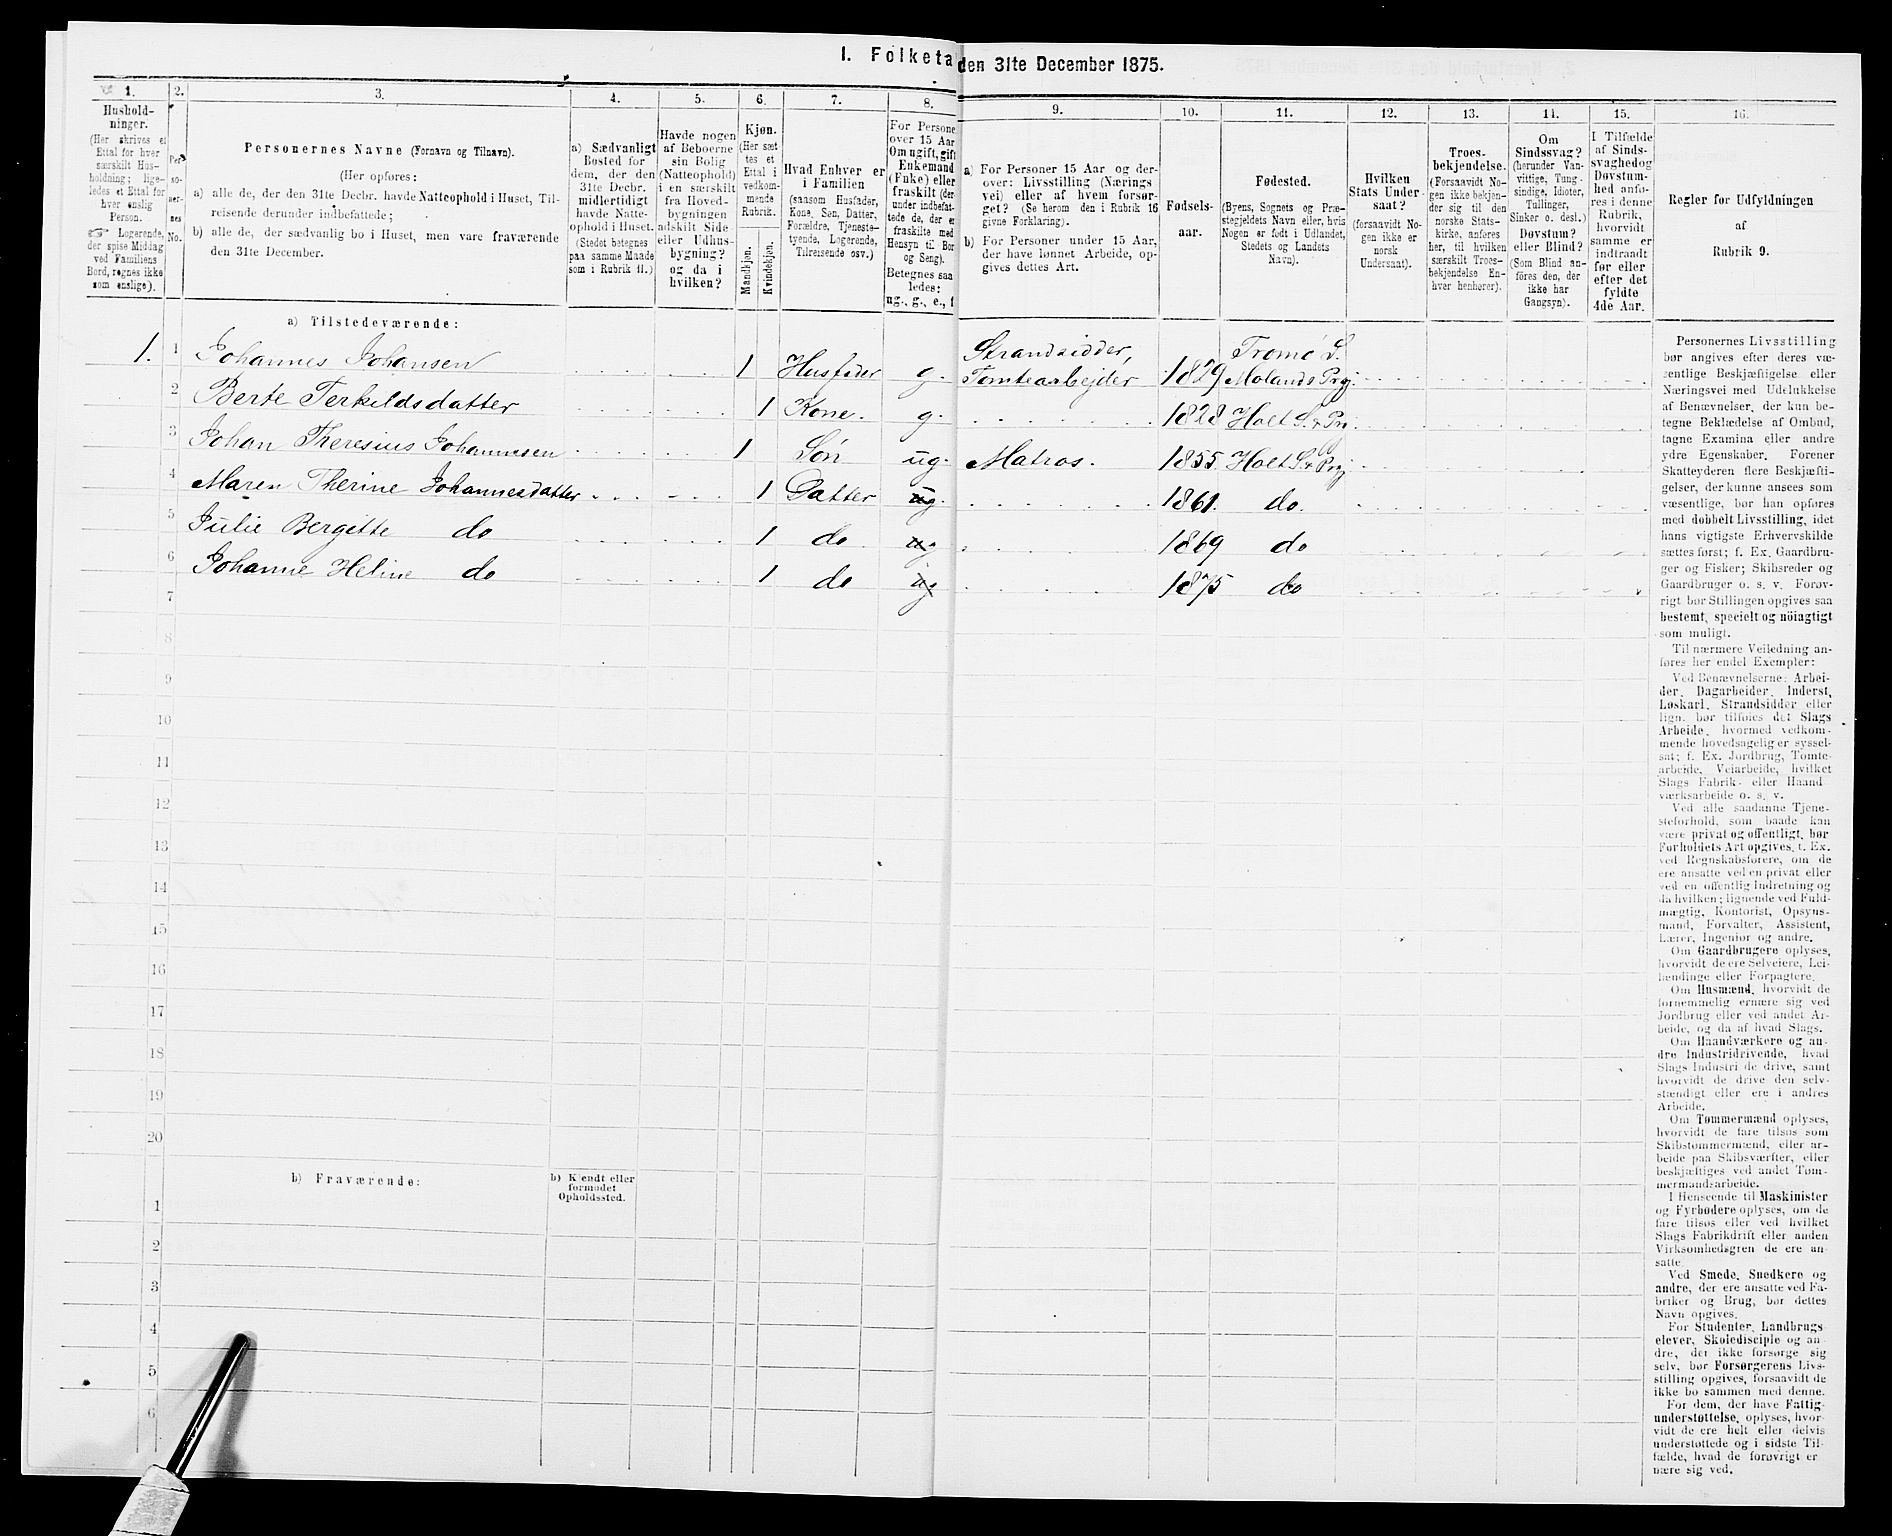 I. Folketa
den 31te December 1875.
1.
Hushold-
ninger.
(Her skrives et
Ettal for hver
særskilt Hus-
holdning; lige-
ledes et Ettal for
hver enslig
Person.
☞ Logerende,
der spise Middag
ved Familiens
Bord, regnes ikke
som enslige).
2.
Per-
so-
ner-
nes
No.
3.
Personernes Navne (Fornavn og Tilnavn).
(Her opføres:
a) alle de, der den 31te Decbr. havde Natteophold i Huset, Til-
reisende derunder indbefattede;
b) alle de, der sædvanlig bo i Huset, men vare fraværende
den 31te December.
4.
a) Sædvanligt
Bosted for
dem, der den
31te Decbr.
midlertidigt
havde Natte-
ophold i Huset.
(Stedet betegnes
paa samme Maade
som i Rubrik 11.)
5.
Havde nogen
af Beboerne
sin Bolig
(Natteophold)
i en særskilt
fra Hoved-
bygningen
adskilt Side-
eller Udhus-
bygning?
og da i
hvilken?
6.
Kjøn.
(Her sæt-
tes et
Ettal i
vedkom-
mende
Rubrik.
Mandkjøn.
Kvindekjøn.
7.
Hvad Enhver er
i Familien
(saasom Husfader,
Kone, Søn, Datter,
Forældre, Tjeneste-
tyende, Logerende,
Tilreisende osv.)
8.
For Persone
over 15 Aar
Om ugift, gift
Enkemand
(Enke) eller
fraskilt (der
under indbefat-
tede de, der er
fraskilte med
Hensyn til Bor
og Seng).
Betegnes saa
ledes:
ug., g., e., f
9.
a) For Personer 15 Aar og der-
over: Livsstilling (Nærings
vei) eller af hvem forsør-
get? (Se herom den i Rubrik 16
givne Forklaring).
b) For Personer under 15 Aar,
der have lønnet Arbeide, op-
gives dettes Art.
10.
Fødsels-
aar.
11.
Fødested.
(Byens, Sognets og Præ-
stegjeldets Navn eller, hvis
Nogen er født i Udlandet,
Stedets og Landets
Navn).
12.
Hvilken
Stats Under-
saat?
(forsaavidt No-
gen ikke er
norsk
Undersaat).
13.
Troes-
bekjendelse.
(Forsaavidt No-
gen ikke bekjen-
der sig til den
norske Stats-
kirke, anføres
her, til hvilken
særskilt Troes-
bekjendelse En-
hver henhører).
14.
Om
Sindssvag?
(herunder Van-
vittige, Tung-
sindige, Idioter,
Tullinger,
Sinker o. desl.)
Døvstum?
eller Blind?
(Som Blind an-
føres den, der
ikke har
Gangsyn).
15.
I Tilfælde
af Sinds-
svaghed og
Døvstum-
hed anfø-
res i denne
Rubrik,
hvorvidt
samme er
indtraadt
før eller
efter det
fyldte
4de Aar.
16.
Regler for Udfyldningen
af
Rubrik 9.
a) Tilstedeværende:
1. 1 Johannes Johansen 1 Husfader g. Strandsidder, Tomtearbejder 1829 Tromø S. Molands Prg.
2 Berte Terkildsdatter 1 Kone. g. 1828 Holt S. & Prg
3 Johan Theresius Johannesen 1 Søn ug. Matros. 1855. Holt S. & Prg
4 Maren Therine Johannesdatter 1 Datter ug. 1861. do.
5 Julie Bergitte do 1 do ug 1869 do
6 Johanne Heline do 1 do ug 1875 do
7
8
9
10
11
12
13
14
15
16
17
18
19
20
b) Fraværende:
b) Kjendt eller
formodet
Opholdssted.
1
2
3
4
5
6
Personernes Livsstilling
bør angives efter deres væ-
sentlige Beskjæftigelse eller
Næringsvei med Udelukkelse
af Benævnelser, der kun be-
tegne Beklædelse af Ombud,
tagne Examina eller andre
ydre Egenskaber. Forener
Skatteyderen flere Beskjæfti-
gelser, der kunne ansees som
væsentlige, bør han opføres
med dobbelt Livsstilling, idet
hans vigtigste Erhvervskilde
sættes først; f. Ex. Gaardbru-
ger og Fisker; Skibsreder og
Gaardbruger o. s. v. Forøv-
rigt bør Stillingen opgives saa
bestemt, specielt og nöiagtigt
som muligt.
Til nærmere Veiledning an-
føres her endel Exempler:
Ved Benævnelserne: Arbei-
der, Dagarbeider, Inderst,
Løskarl, Strandsidder eller
lign. bør tilføies det Slags
Arbeide, hvormed vedkom-
mende hovedsagelig er syssel-
sat; f. Ex. Jordbrug, Tomte-
arbeide, Veiarbeide, hvilket
Slags Fabrik- eller Haand-
værksarbeide o. s. v.
Ved alle saadanne Tjene-
steforhold, som baade kan
være privat og offentligt, bør
Forholdets Art opgives, f. Ex.
ved Regnskabsførere, om de
ere ansatte ved en privat eller
ved en offentlig Indretning og
da hvilken; lignende ved Fuld-
mægtig, Kontorist, Opsyns-
mand, Forvalter, Assistent,
Lærer, Ingeniør og andre.
Om Gaardbrugere oplyses,
hvorvidt de ere Selveiere, Lei-
lændinge eller Forpagtere.
Om Husmænd, hvorvidt de
fornemmelig ernære sig ved
Jordbrug eller ved andet Ar-
beide, og da af hvad Slags.
Om Haandværkere og an-
dre Industridrivende, hvad
Slags Industri de drive, samt
hvorvidt de drive den selv-
stændigt eller ere i andres
Arbeide.
Om Tømmermænd oplyses,
hvorvidt de fare tilsøs som
Skibstømmermænd, eller ar-
beide paa Skibsværfter, eller
beskjæftiges ved andet Tøm-
mermandsarbeide.
I Henseende til Maskinister
og Fyrbødere oplyses, om de
fare tilsøs eller ved hvilket
Slags Fabrikdrift eller anden
Virksomhedsgren de ere an-
satte.
Ved Smede, Snedkere og
andre, der ere ansatte ved Fa-
briker og Brug, bør dettes
Navn opgives.
For Studenter, Landbrugs-
elever, Skoledisciple og an-
dre, der ikke forsørge sig
selv, bør Forsørgerens Livs-
stilling opgives, forsaavidt de
ikke bo sammen med denne.
For dem, der have Fattig-
understøttelse, oplyses, hvor-
vidt de ere helt eller delvis
understøttede og i sidste Til-
fælde, hvad de forøvrigt er
nære sig ved.